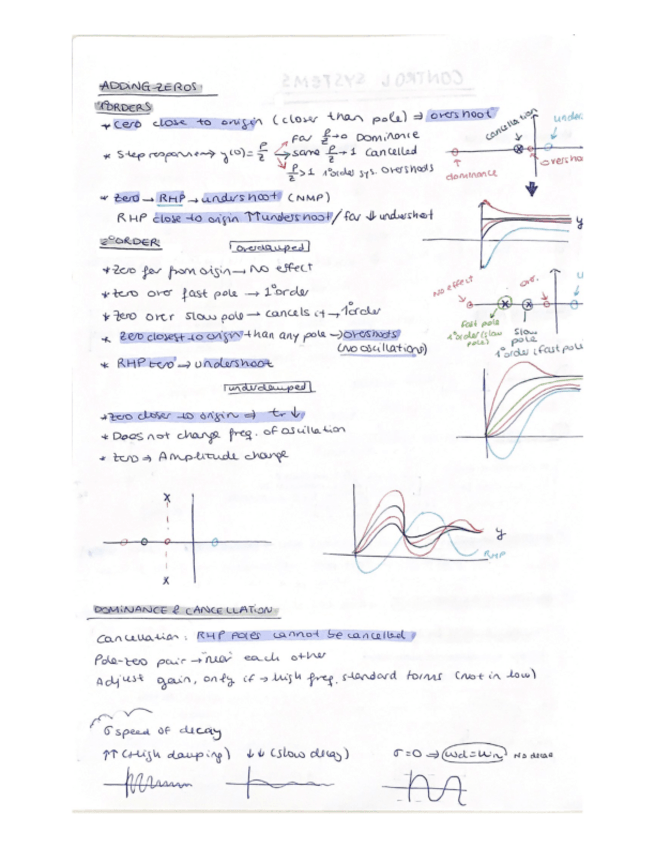 CONTROL SYSTEMS
ADDING ZEROS
1ºORDERS
* Cero close to origin (closer than pole) ⇒ overshoot
* Step response → y(0) = P/Z
far P/Z → 0 Dominance
same P/Z → 1 Cancelled
P/Z > 1 1ºorder sys. overshoots
cancellation
under
dominance
oversho
* Zero → RHP → undershoot (NMP)
RHP close to origin ↑↑ undershoot / far ↓ undershoot
y
2ºORDER
overdamped
* Zero far from origin → No effect
* Zero over fast pole → 1ºorder
* Zero over slow pole → cancels it → 1ºorder
* Zero closest to origin than any pole → overshoots
(no oscillations)
* RHP zero → undershoot
No effect
ove.
u
fast pole
1ºorder (slow pole)
slow pole
1ºorder (fast pole
underdamped
* Zero closer to origin ⇒ tr ↓
* Does not change freq. of oscillation
* Zero ⇒ Amplitude change
X
X
y
RHP
DOMINANCE & CANCELLATION
Cancellation: RHP poles cannot be cancelled
Pole-zero pair → "near" each other
Adjust gain, only if → high freq. standard forms (not in low)
σ speed of decay
↑↑ (High damping) ↓↓ (slow decay) σ=0 ⇒ ωd=ωn No decay